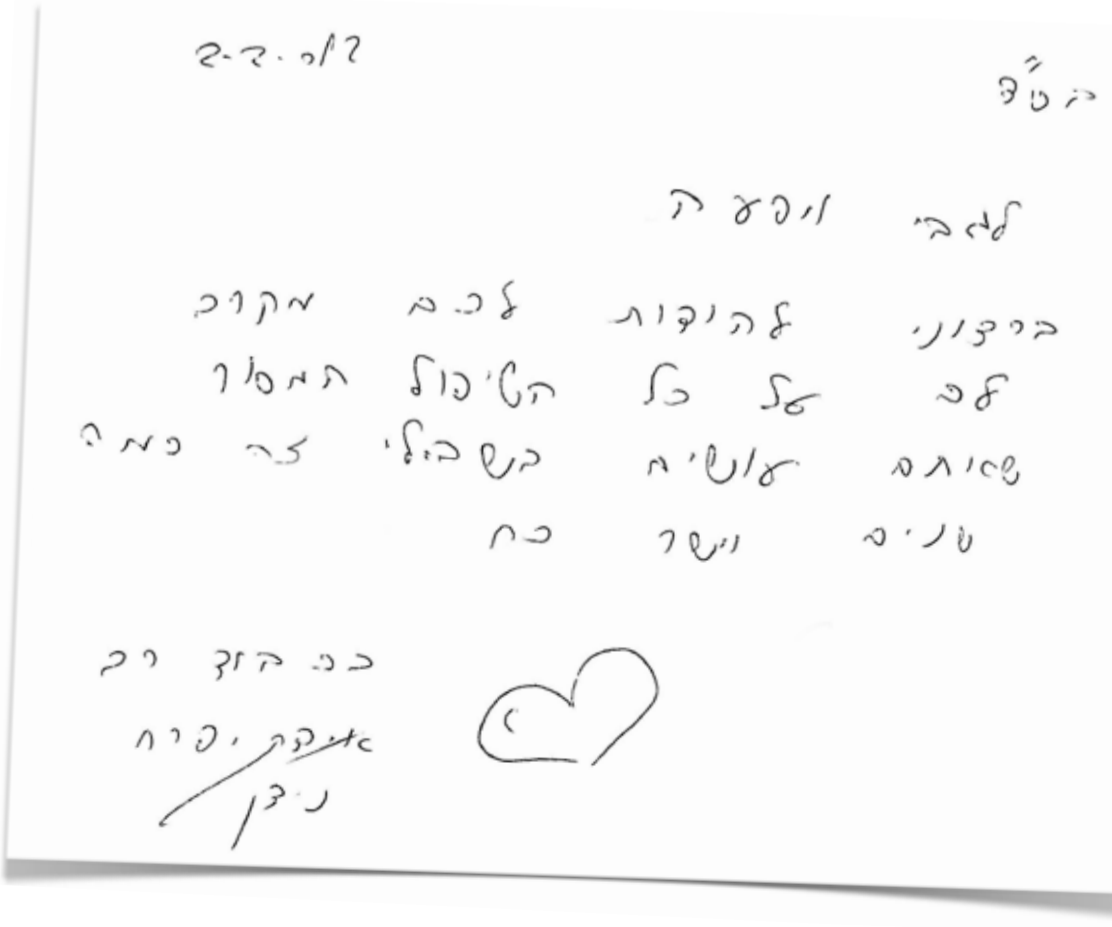 בס"ד
לגבי ויפעה
ברצוני להודות לכם מקרב
לב על כל הטיפול המסור
שאתם עושים בשבילי זה כמה
שנים וישר כח
בהבוד רב
יפרח
ניצן